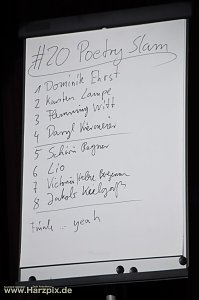 #20 Poetry Slam
1 Dominik Erhst
2 Karsten Lampe
3 Flemming Witt
4 Daryl
5 Schörn Bogner
6 Lio
7 Victoria Helene Bergemann
8 Jakob
Finale .. yeah
www.Harzpix.de